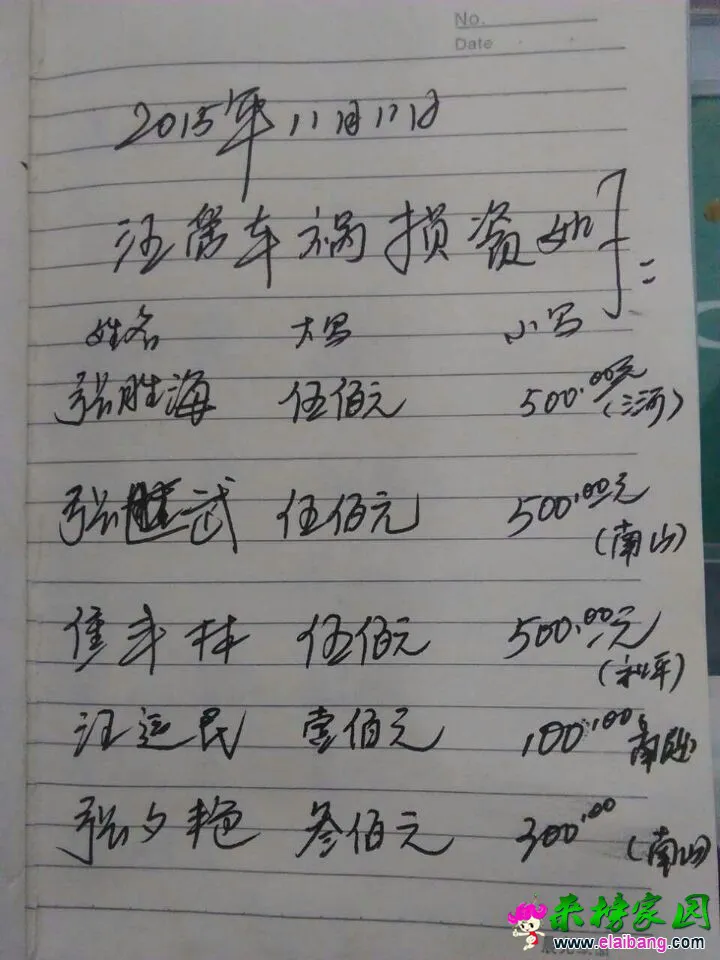 No.
Date
2015年11月17日
汪营车祸损资如下=
姓名 大写 小写
张胜海 伍佰元 500.00元
(三河)
张 武 伍佰元 500.00元
(南山)
伍佰元 500.00元
(和平)
汪运民 壹佰元 100.00
张夕艳 叁佰元 300.00 (南山)
来榜家园
www.elaibang.com